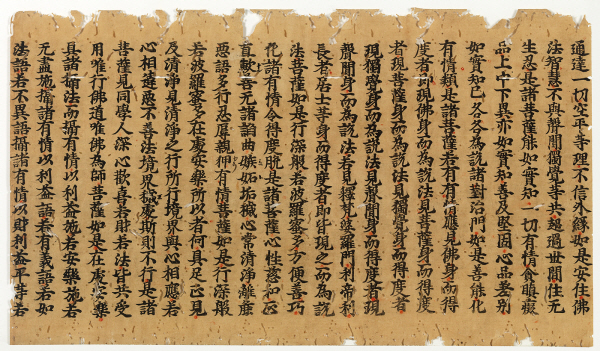 通達一切空平等理不信外緣如是安住佛
法智慧不與聲聞獨覺等共超過世間住无
生忍是諸菩薩能如實知一切有情貪瞋癡
品上中下異亦如實知善及堅固心品差別
如實知已各各為說諸對治門如是善能化
有情類是諸菩薩若有有情應見佛身而得
度者即現佛身而為說法見菩薩身而得度
者現菩薩身而為說法見獨覺身而得度者
現獨覺身而為說法見聲聞身而得度者現
聲聞身而為說法若見釋梵婆羅門剎帝利
長者居士等身而得度者即皆現之而為說
法菩薩如是行深般若波羅蜜多方便善巧
化諸有情令得度脫是諸菩薩心性柔和正
直无諸諂曲嫉妬垢穢心常清淨離麁
惡語多行忍辱親狎有情菩薩如是行深般
若波羅蜜多在處安樂所以者何具足正見
及清淨見清淨之行所行境界與心相應若
心相違惡不善法境界穢處斯則不行是諸
菩薩見同學人深心歡喜若財若法皆共受
用唯行佛道唯佛為師菩薩如是在處安樂
具諸攝法而攝有情以利益施若安樂施若
无盡施攝諸有情以利益語若有義語若如
法語若不異語攝諸有情以財利益平等若